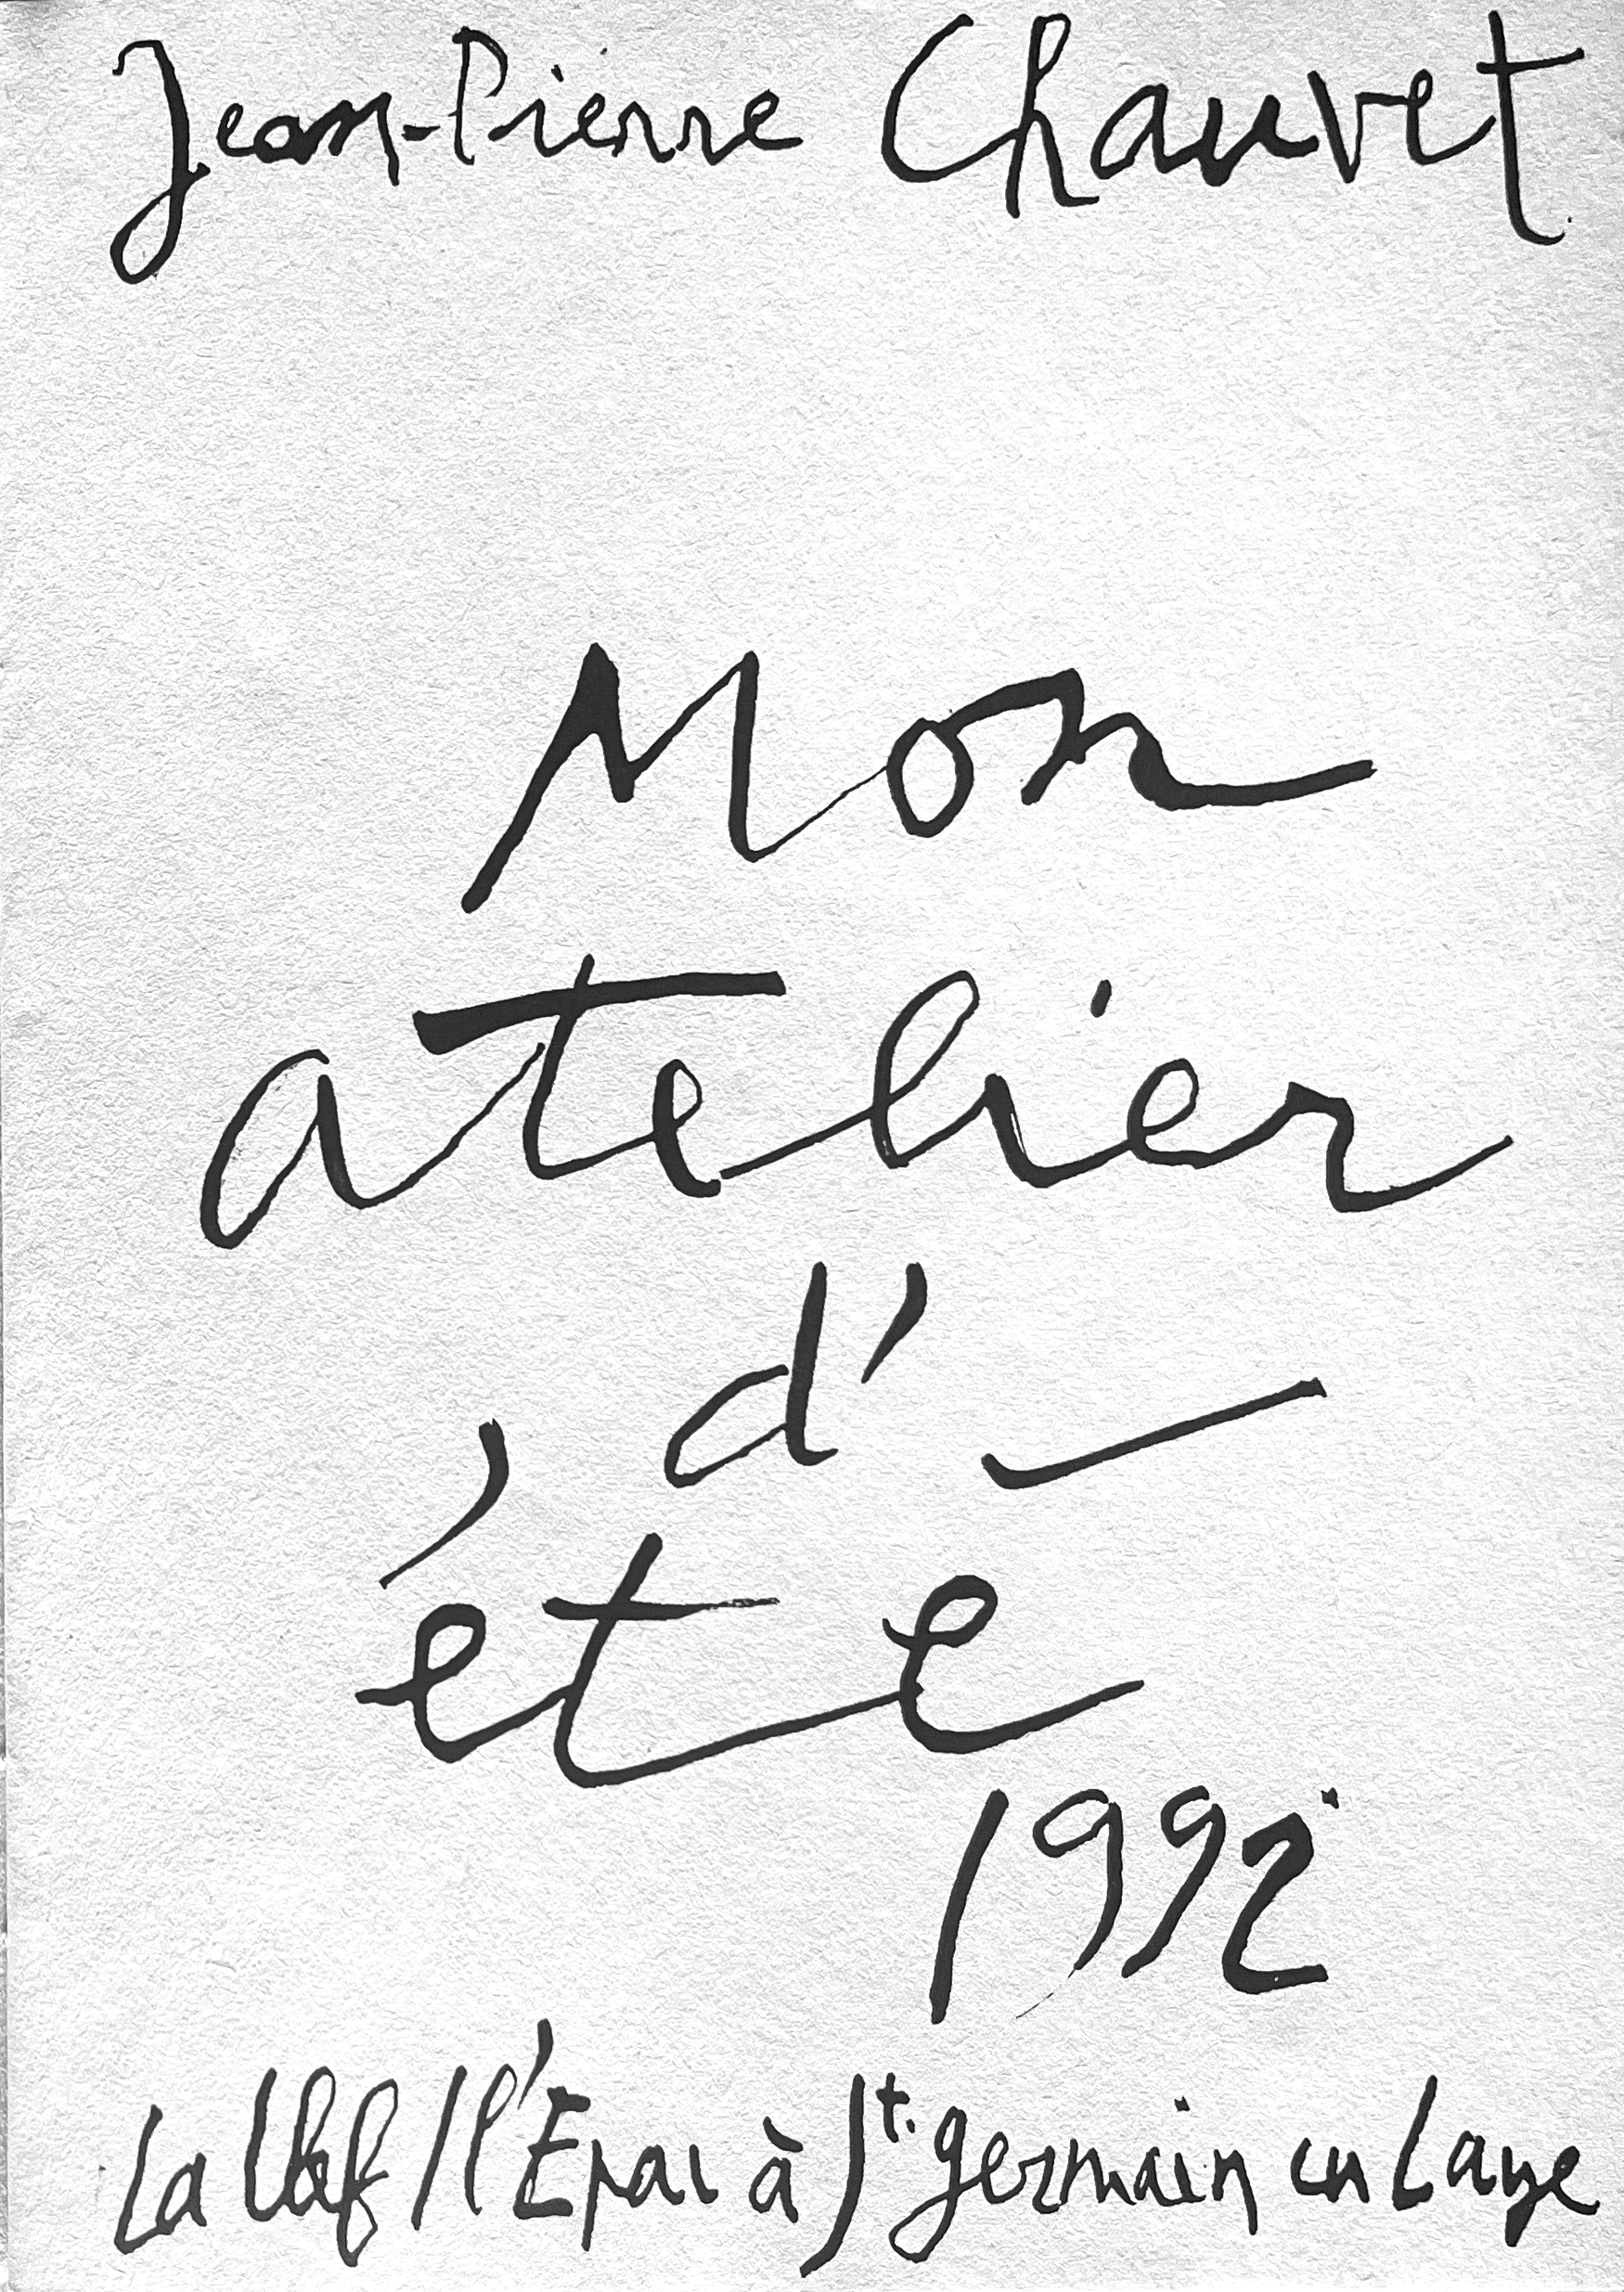 Jean-Pierre Chauvet
Mon
atelier
d'
été
1992
La Clef / l'Epac à St. Germain en Laye